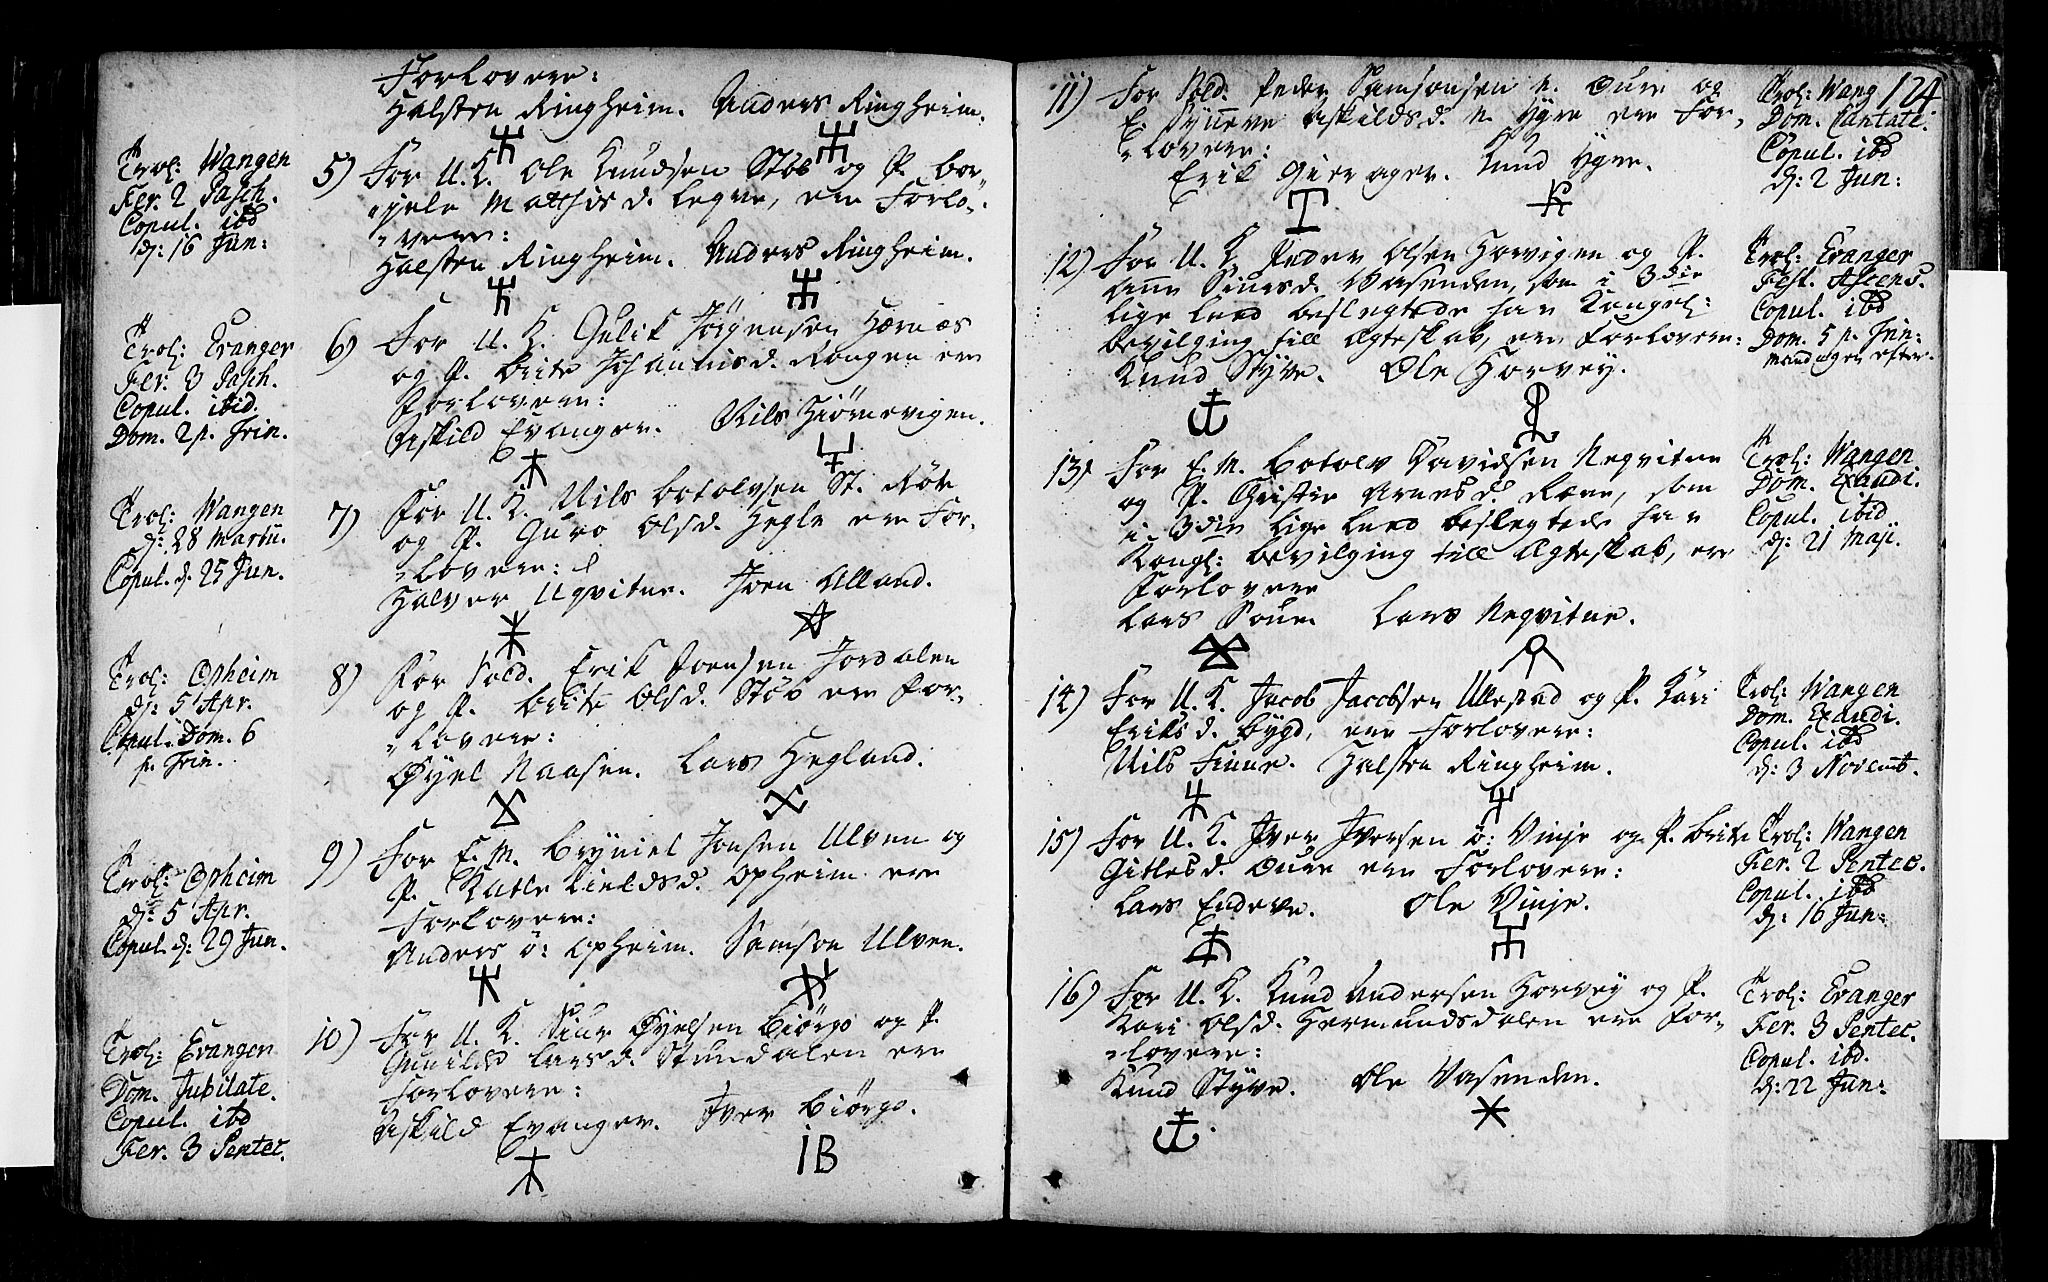 Forlovere:
Halsten Ringheim. Anders Ringheim.
Trol: Wangen
Fer. 2 Pasch.
Copul. ibd
d: 16 Jun:
5) For U. K. Ole Knudsen Støb og P. Bor-
-jele Matthisd. Legre, ere Forlo-
-vere:
Halsten Ringheim. Anders Ringheim.
Trol: Evanger
Fer. 3 Pasch.
Copul. ibid.
Dom. 2 p. Trin.
6) For U. K. Gulik Jørgensen Hernæs
og P. Brite Johannisd. Rongen ere
Forlovere:
Askild Evanger. Nils Hiørnevigen.
Trol: Wangen
d: 28 Martii.
Copul. d. 25 Jun.
7) For U. K. Nils Botolvsen St. Røte
og P. Guro Olsd. Hegle ere For-
-lovere:
Halver Ugvitne. Joen Alland.
Trol: Opheim
d: 5 Apr.
Copul. Dom. 6
p. Trin.
8) For Sold. Erik Joensen Jordalen
og P. Brite Olsd. Støb ere For-
-lovere:
Øyel Naasen. Lars Hegland.
Trol: Opheim
d: 5 Apr.
Copul. d: 29 Jun.
9) For E. M. Bryniel Jonsen Ulven og
P. Katle Kieldsd. Opheim ere
Forlovere:
Anders ö: Opheim. Samson Ulven.
Trol: Evanger
Dom. Jubilate.
Copul. ibd
Fer. 3 Pentec.
10) For U. K. Siur Øyelsen Biørgo og P.
Gunilde Larsd. Stundalen ere
Forlovere:
Askild Evanger. Iver Biørgo.
IB
124
11) For Sold. Peder Samsonsen n. Qure og
E. Synneve Askildsd. n. Hyre ere For-
-lovere:
Erik Gierager. Knud Hyre.
Trol: Wang
Dom. Cantate.
Copul. ibd
d: 2 Jun:
12) For U. K. Peder Olsen Horvigen og P.
Anne Siursd. Wasenden, som i 3die
lige Leed beslegtede har Kongel:
Bevilging till Ægteskab, ere Forlovere:
Knud Styve. Ole Horvey.
Trol: Evanger
Fest. Ascens.
Copul. ibd
Dom. 5 p. Trin:
mandagen efter.
13) For E. M. Botolv Davidsen Negvitne
og P. Cristie Arnesd. Rene, som
i 3die lige Leed beslegtede har
Kongl: Bevilging till Ægteskab, ere
Forlovere
Lars Soue. Lars Negvitne.
Trol: Wangen
Dom. Exaudi.
Copul. ibid
d: 21 Maji.
14) For U. K. Jacob Jacobsen Ullestad og P. Kari
Eriksd. Bygd, ere Forlovere:
Nils Finne. Halsten Ringheim.
Trol: Wangen
Dom. Exaudi.
Copul. ibd
d: 3 Novemb.
15) For U. K. Iver Iversen ö: Vinje og P. Brite
Gitlesd. Qure ere Forlovere:
Lars Endeve. Ole Vinje.
Trol: Wangen
Fer. 2 Pentec.
Copul. ibd
d: 16 Jun:
16) For U. K. Knud Andersen Horvey og P.
Kari Olsd. Hermundsdalen ere For-
-lovere:
Knud Styve. Ole Vasenden.
Trol: Evanger
Fer. 3 Pentec.
Copul. ibd.
d: 22 Jun: